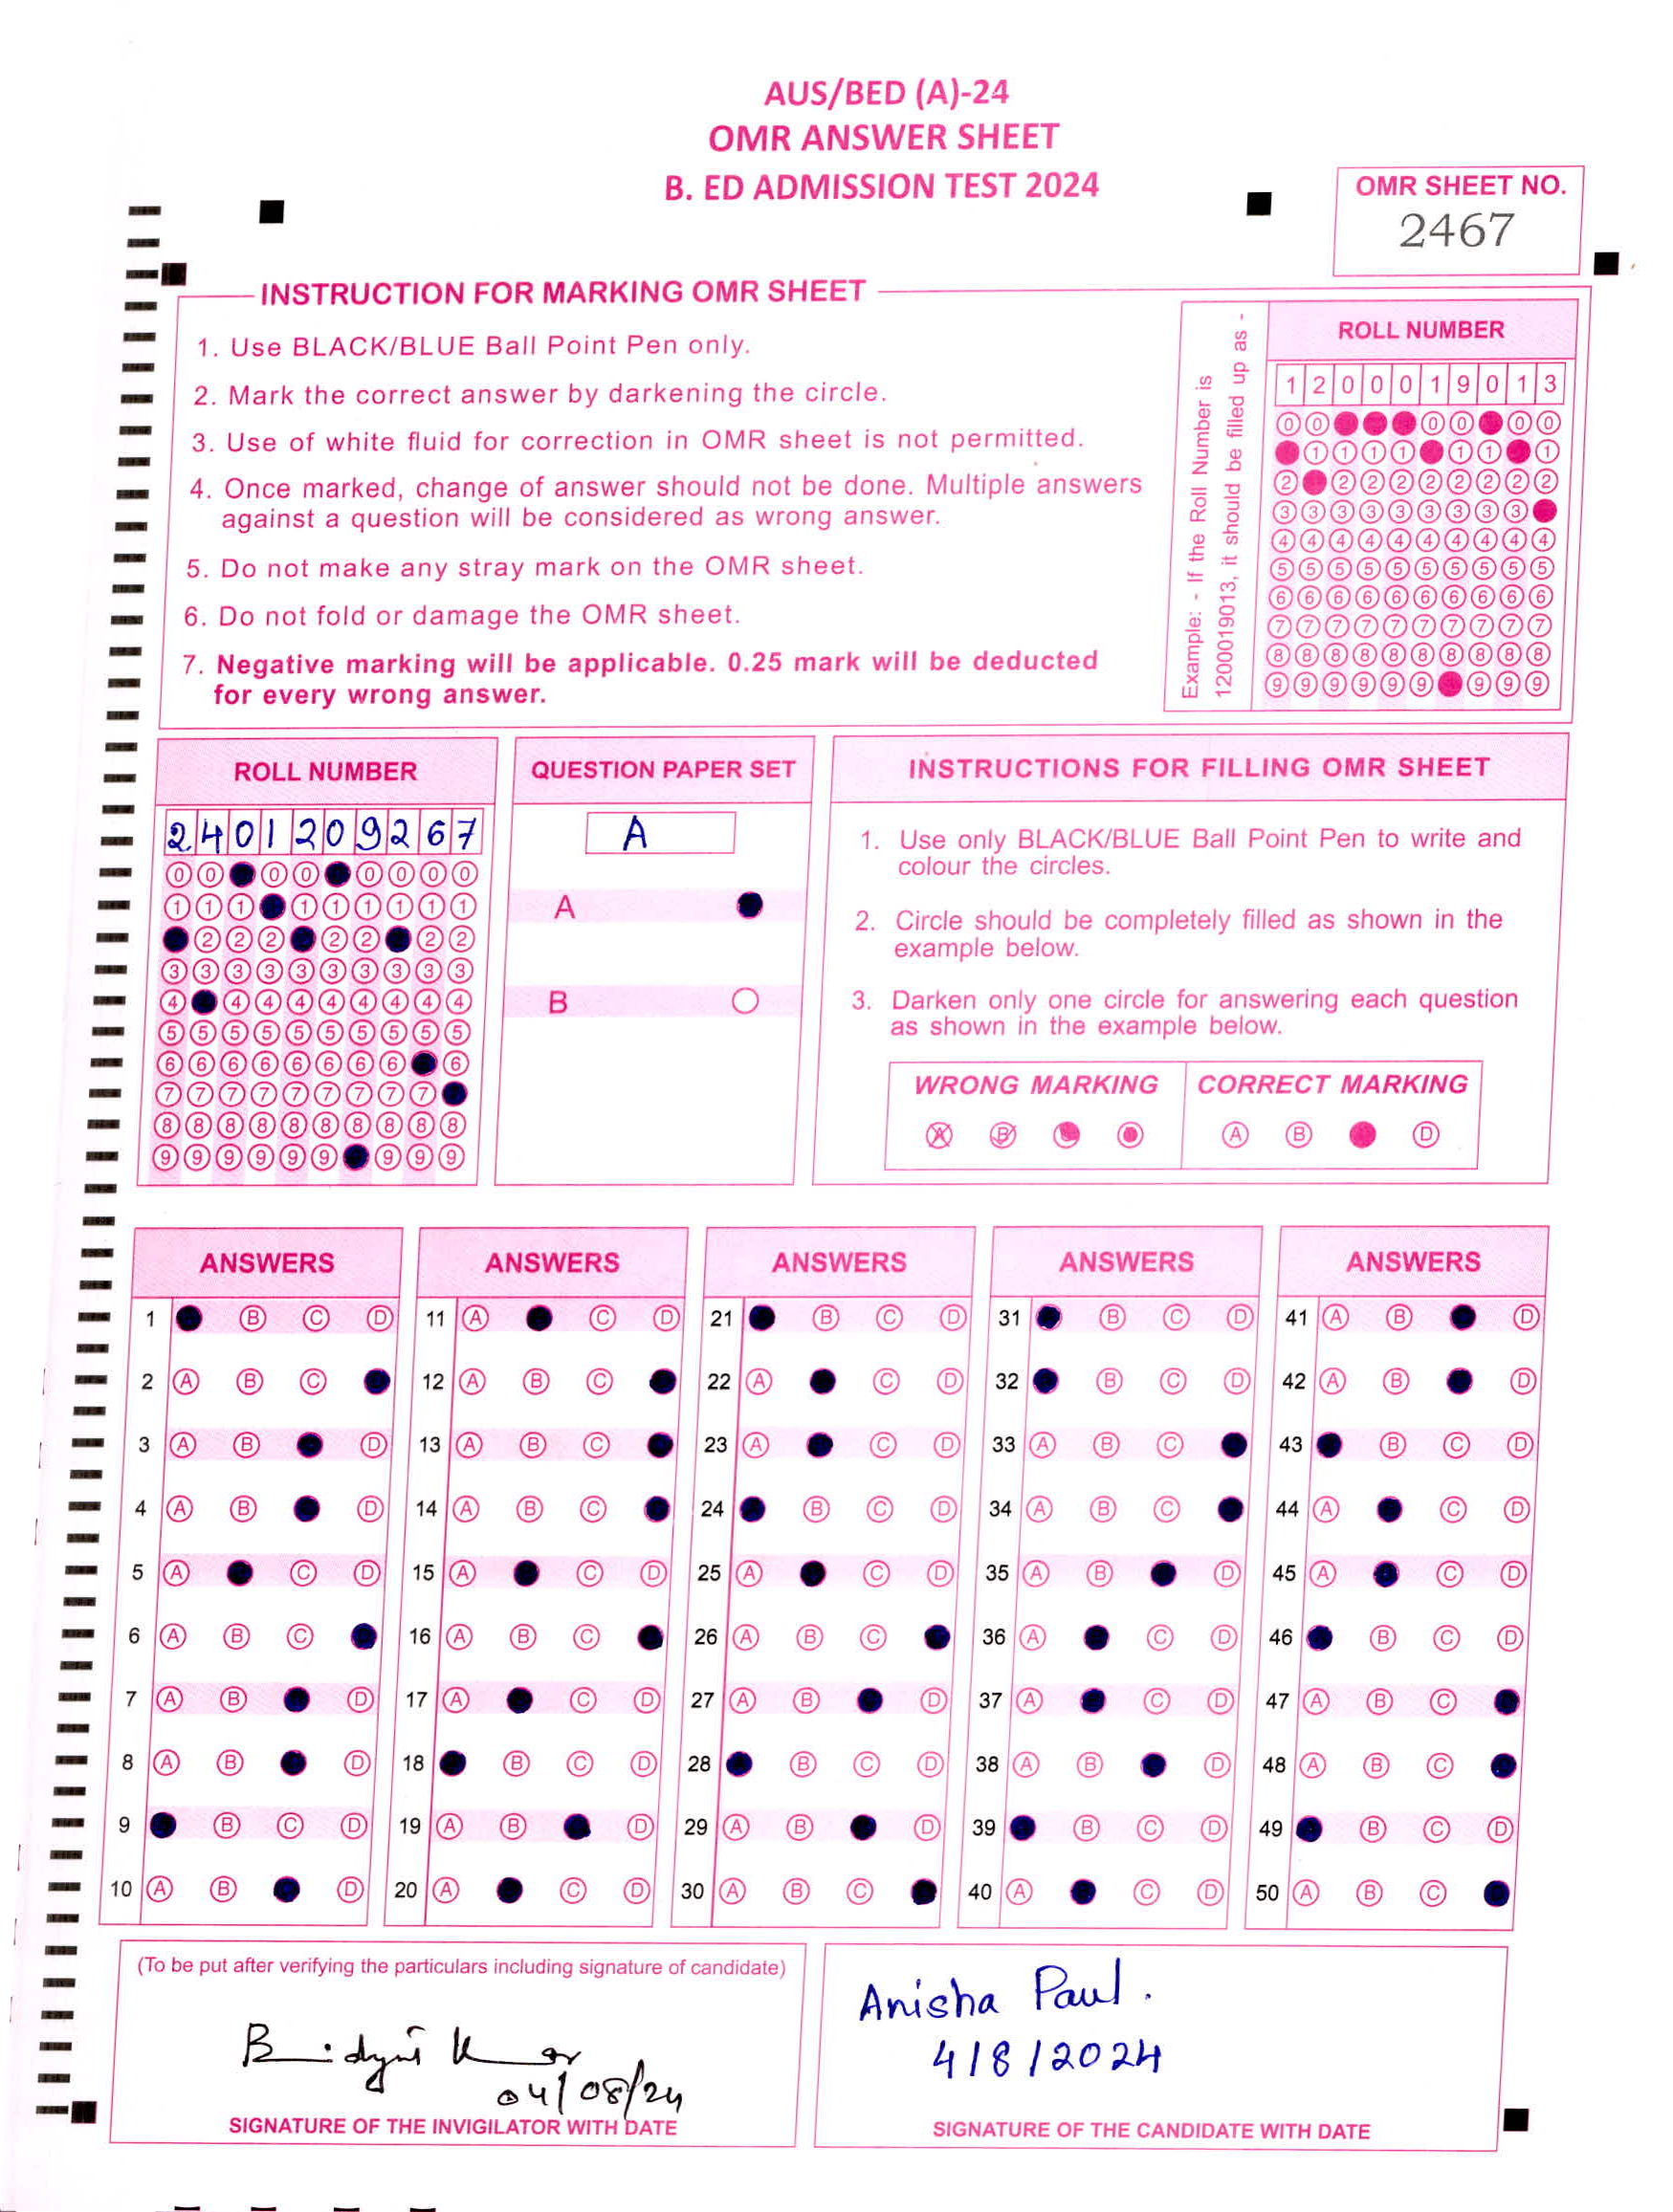 AUS/BED (A)-24
OMR ANSWER SHEET
B. ED ADMISSION TEST 2024
OMR SHEET NO.
2467
INSTRUCTION FOR MARKING OMR SHEET
1. Use BLACK/BLUE Ball Point Pen only.
2. Mark the correct answer by darkening the circle.
3. Use of white fluid for correction in OMR sheet is not permitted.
4. Once marked, change of answer should not be done. Multiple answers
against a question will be considered as wrong answer.
5. Do not make any stray mark on the OMR sheet.
6. Do not fold or damage the OMR sheet.
7. Negative marking will be applicable. 0.25 mark will be deducted
for every wrong answer.
Example: - If the Roll Number is
1200019013, it should be filled up as -
ROLL NUMBER
1 2 0 0 0 1 9 0 1 3
0 0 0 0 0 0
1 1 1 1 1 1 1
2 2 2 2 2 2 2 2 2
3 3 3 3 3 3 3 3 3
4 4 4 4 4 4 4 4 4 4
5 5 5 5 5 5 5 5 5 5
6 6 6 6 6 6 6 6 6 6
7 7 7 7 7 7 7 7 7 7
8 8 8 8 8 8 8 8 8 8
9 9 9 9 9 9 9 9 9
ROLL NUMBER
2 4 0 1 2 0 9 2 6 7
0 0 0 0 0 0 0 0
1 1 1 1 1 1 1 1 1
2 2 2 2 2 2 2
3 3 3 3 3 3 3 3 3 3
4 4 4 4 4 4 4 4 4
5 5 5 5 5 5 5 5 5 5
6 6 6 6 6 6 6 6 6
7 7 7 7 7 7 7 7 7
8 8 8 8 8 8 8 8 8 8
9 9 9 9 9 9 9 9 9
QUESTION PAPER SET
A
A
B
INSTRUCTIONS FOR FILLING OMR SHEET
1. Use only BLACK/BLUE Ball Point Pen to write and
colour the circles.
2. Circle should be completely filled as shown in the
example below.
3. Darken only one circle for answering each question
as shown in the example below.
WRONG MARKING
A B
CORRECT MARKING
A B D
ANSWERS
1 B C D
2 A B C
3 A B D
4 A B D
5 A C D
6 A B C
7 A B D
8 A B D
9 B C D
10 A B D
ANSWERS
11 A C D
12 A B C
13 A B C
14 A B C
15 A C D
16 A B C
17 A C D
18 B C D
19 A B D
20 A C D
ANSWERS
21 B C D
22 A C D
23 A C D
24 B C D
25 A C D
26 A B C
27 A B D
28 B C D
29 A B D
30 A B C
ANSWERS
31 B C D
32 B C D
33 A B C
34 A B C
35 A B D
36 A C D
37 A C D
38 A B D
39 B C D
40 A C D
ANSWERS
41 A B D
42 A B D
43 B C D
44 A C D
45 A C D
46 B C D
47 A B C
48 A B C
49 B C D
50 A B C
(To be put after verifying the particulars including signature of candidate)
04/08/24
SIGNATURE OF THE INVIGILATOR WITH DATE
Anisha Paul.
4/8/2024
SIGNATURE OF THE CANDIDATE WITH DATE